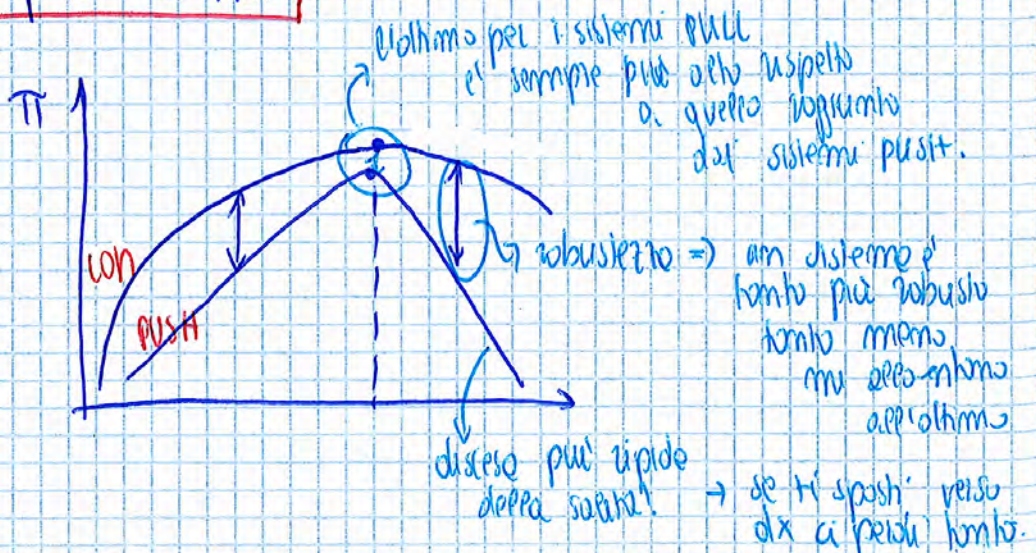 l'ottimo per i sistemi PULL
e' sempre più alto rispetto
a quello raggiunto
dai sistemi push.
π
CON
PUSH
robustezza => un sistema è
tanto più robusto
tanto meno
mi allontano
dall'ottimo
discesa più ripida
della salita!
→ se ti sposti verso
dx ci perdi tanto.